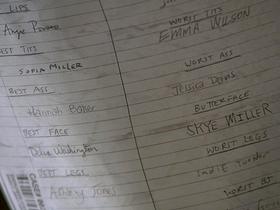 LIPS
Angie
BEST TITS
SOFIA MILLER
BEST ASS
Hannah Baker
BEST FACE
Washington
BEST LEGS
Ashley Jones
WORST TITS
EMMA WILSON
WORST ASS
Jessica Davis
BUTTERFACE
SKYE MILLER
WORST LEGS
WORST